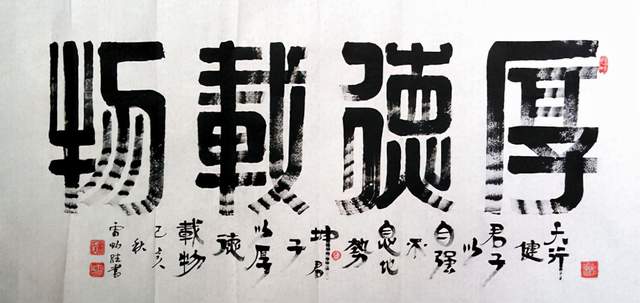 厚德載物
天行
健
君子
以
自强
不
息地
勢
坤君
子
以厚
德
載物
己亥
秋
書